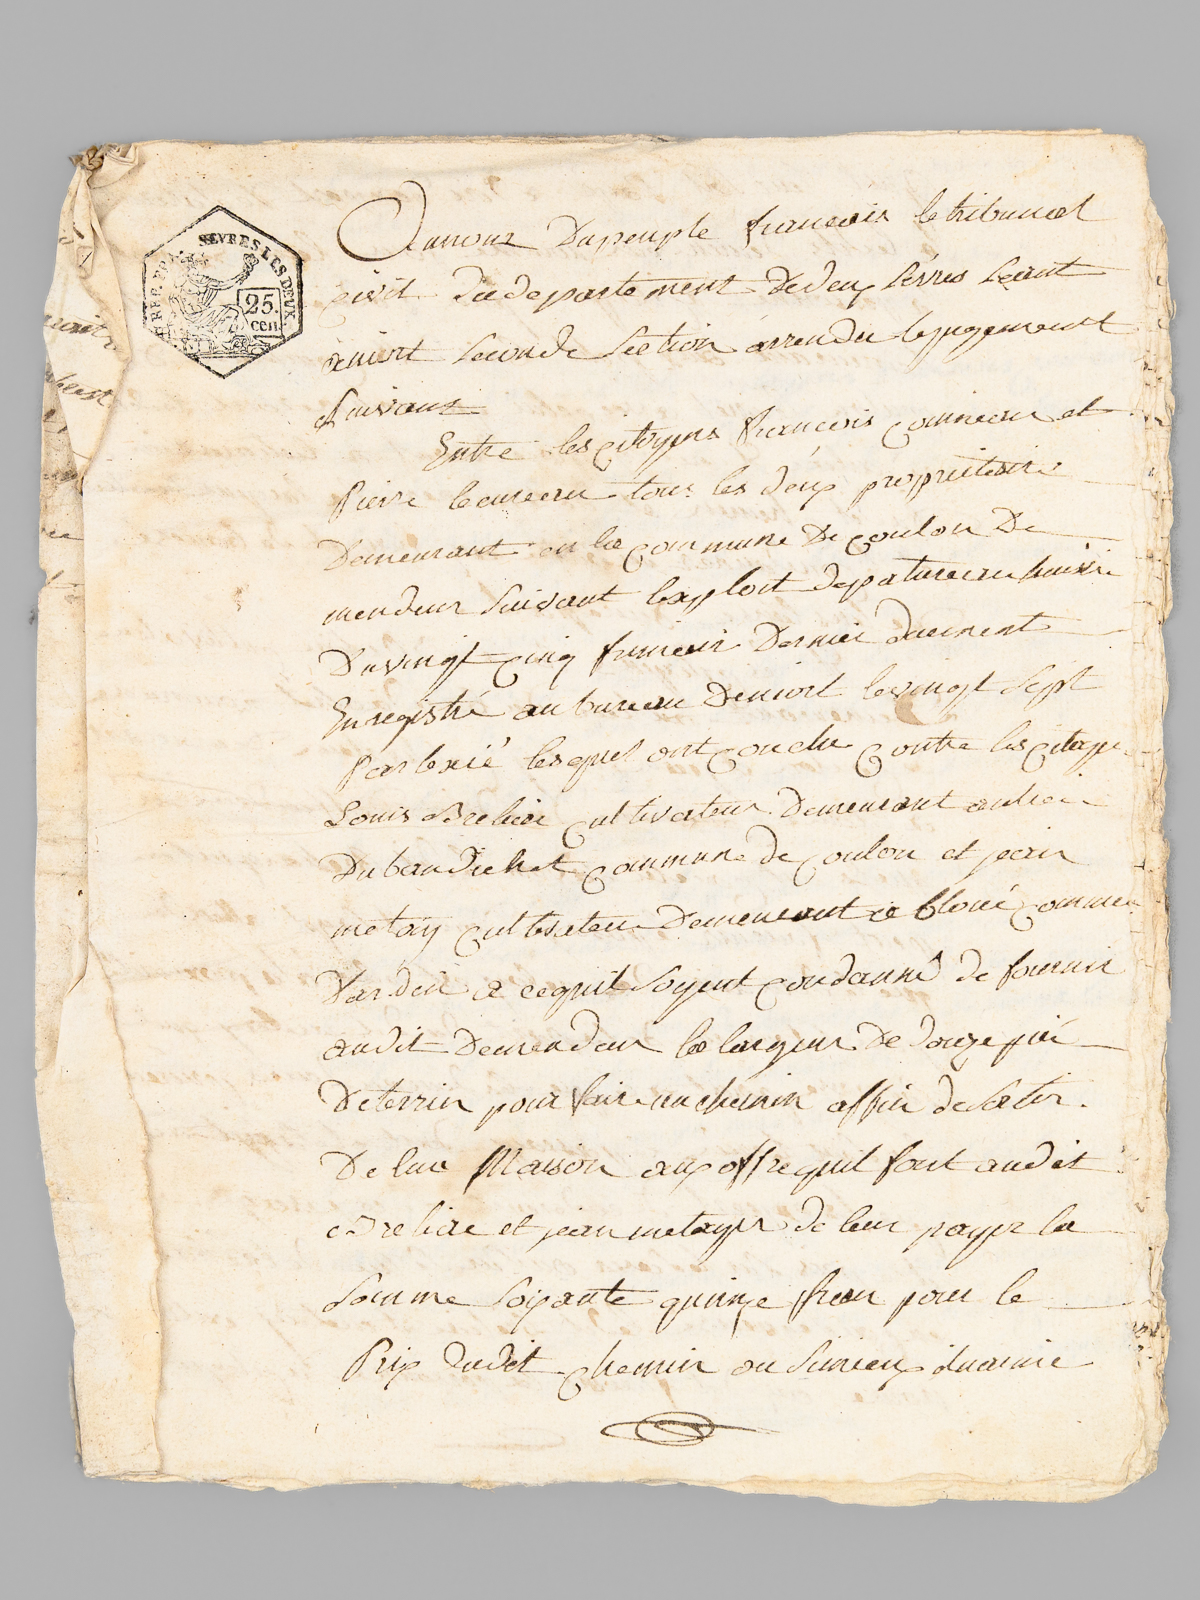 SEVRES LES DEUX
REP. FRA.
25.
cen.
Aunom Dupeuple francais letribunal
civil dudepartement Dedeux sevres seant
aniort seconde section arrendu lejugement
Suivant
Entre lescitoyens francois et
Pierre tous les deux proprietaire
Demeurant en la commune De coulon De
mendeur suivant lexploit depatureau huisie
Duvingt cinq frimair Dernier duement
Enregistré aubureau Deniort levingt sept
Par lesquel ont conclu contre lescitoyen
Louis Breliae cultivateur Demeurant
commune de coulon et jean
metay cultivateur Demeurant a commune
a cequil soyent condanné de fournir
audit Demendeur la largeur De douze pié
Deterrin pour fair unchemin affin desortir
De Maison aux offre quil font audit
Breliae et jean metayer de leur payer la
Somme soixante quinze fran pour le
Prix dudit chemin ou simieux